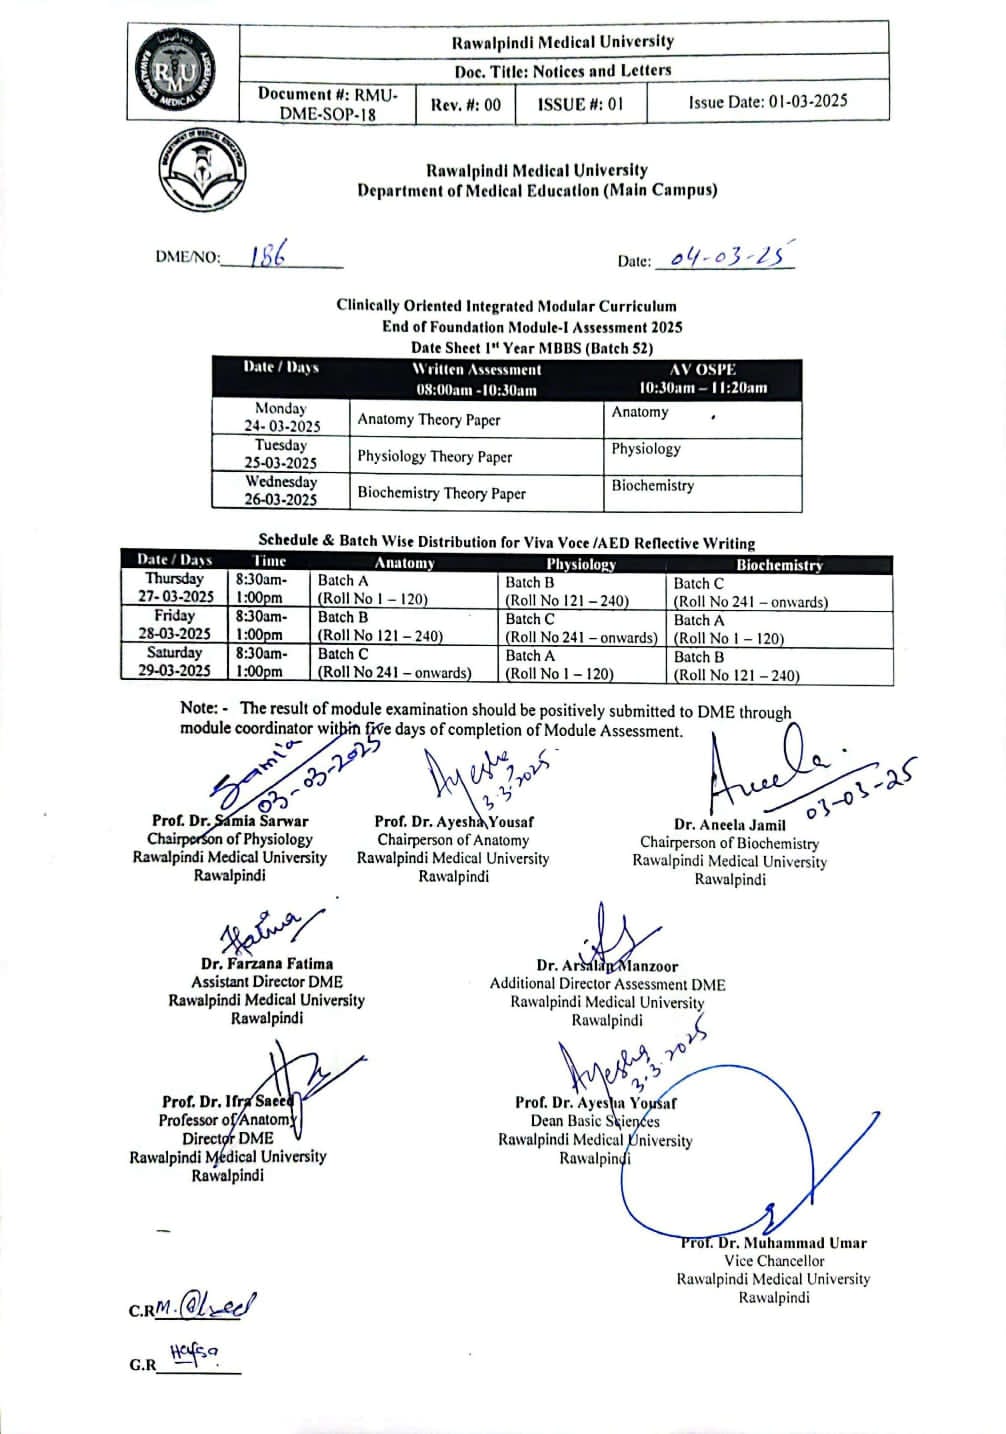 Rawalpindi Medical University
Doc. Title: Notices and Letters
Document #: RMU-DME-SOP-18 Rev. #: 00 ISSUE #: 01 Issue Date: 01-03-2025
RMU
RAWALPINDI MEDICAL UNIVERSITY
DEPARTMENT OF MEDICAL EDUCATION
Rawalpindi Medical University
Department of Medical Education (Main Campus)
DME/NO: 186 Date: 04-03-25
Clinically Oriented Integrated Modular Curriculum
End of Foundation Module-I Assessment 2025
Date Sheet 1st Year MBBS (Batch 52)
Date / Days Written Assessment AV OSPE
08:00am -10:30am 10:30am – 11:20am
Monday
24- 03-2025 Anatomy Theory Paper Anatomy
Tuesday
25-03-2025 Physiology Theory Paper Physiology
Wednesday
26-03-2025 Biochemistry Theory Paper Biochemistry
Schedule & Batch Wise Distribution for Viva Voce /AED Reflective Writing
Date / Days Time Anatomy Physiology Biochemistry
Thursday 8:30am- Batch A Batch B Batch C
27- 03-2025 1:00pm (Roll No 1 – 120) (Roll No 121 – 240) (Roll No 241 – onwards)
Friday 8:30am- Batch B Batch C Batch A
28-03-2025 1:00pm (Roll No 121 – 240) (Roll No 241 – onwards) (Roll No 1 – 120)
Saturday 8:30am- Batch C Batch A Batch B
29-03-2025 1:00pm (Roll No 241 – onwards) (Roll No 1 – 120) (Roll No 121 – 240)
Note: - The result of module examination should be positively submitted to DME through
module coordinator within five days of completion of Module Assessment.
Samia Ayesha Aneela
03-03-2025 3.3.2025 03-03-25
Prof. Dr. Samia Sarwar Prof. Dr. Ayesha Yousaf Dr. Aneela Jamil
Chairperson of Physiology Chairperson of Anatomy Chairperson of Biochemistry
Rawalpindi Medical University Rawalpindi Medical University Rawalpindi Medical University
Rawalpindi Rawalpindi Rawalpindi
Dr. Farzana Fatima Dr. Arsalan Manzoor
Assistant Director DME Additional Director Assessment DME
Rawalpindi Medical University Rawalpindi Medical University
Rawalpindi Rawalpindi
Ayesha
3.3.2025
Prof. Dr. Ifra Saeed Prof. Dr. Ayesha Yousaf
Professor of Anatomy Dean Basic Sciences
Director DME Rawalpindi Medical University
Rawalpindi Medical University Rawalpindi
Rawalpindi
Prof. Dr. Muhammad Umar
Vice Chancellor
Rawalpindi Medical University
Rawalpindi
C.R M.
G.R Hafsa